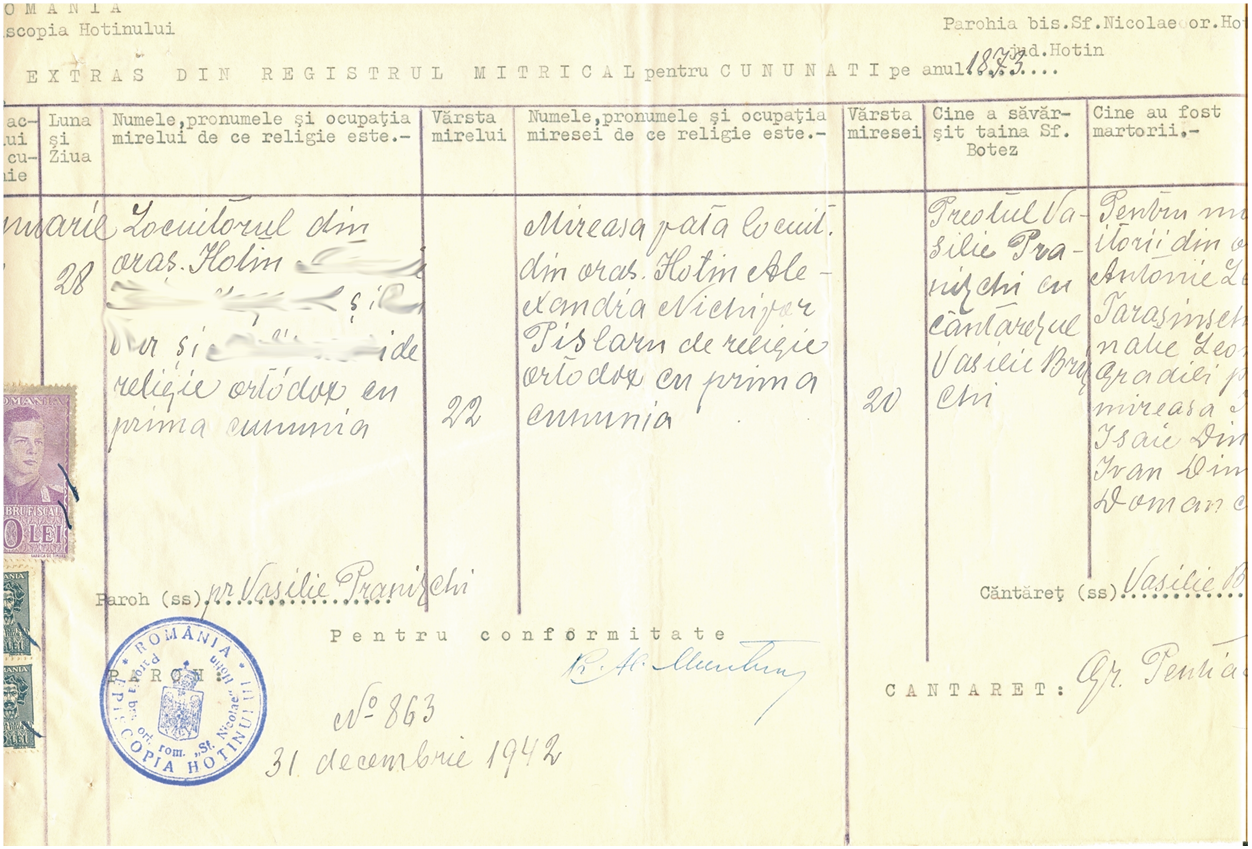 ROMANIA
scopia Hotinului
Parohia bis.Sf.Nicolae or.Ho
jud.Hotin
EXTRAS DIN REGISTRUL MITRICAL pentru CUNUNATI pe anul 1873....
ac-
lui
cu-
nie
Luna
şi
Ziua
Numele,pronumele şi ocupaţia
mirelui de ce religie este.-
Vărsta
mirelui
Numele,pronumele şi ocupaţia
miresei de ce religie este.-
Vărsta
miresei
Cine a săvăr-
şit taina Sf.
Botez
Cine au fost
martorii,-
nuarie
28
Locuitorul din
oras. Hotin
şi
şi de
religie ortodox cu
prima cununia
22
Mireasa fata locuit.
din oras. Hotin Ale-
xandra Nichifor
Pislaru de religie
ortodox cu prima
cununia
20
Preotul Va-
silie Pra-
niţchi cu
cântareţul
Vasilie Briţ
chi
Pentru mi
itorii din o
Antonie Le
Tarasinsch
natie Leon
Gradiei p
mireasa
Isaie Din
Ivan Dim
Doman c
ROMANIA
BRU FISCAL
0 LEI
Paroh (ss) pr Vasilie Praniţchi
Căntăreţ (ss) Vasilie B
Pentru conformitate
PAROH:
CANTARET: Gr. Pentia
ROMÂNIA
EPISCOPIA HOTINULUI
Parohia bis. ort. rom. „Sf. Nicolae" Hotin
№ 863
31 decembrie 1942